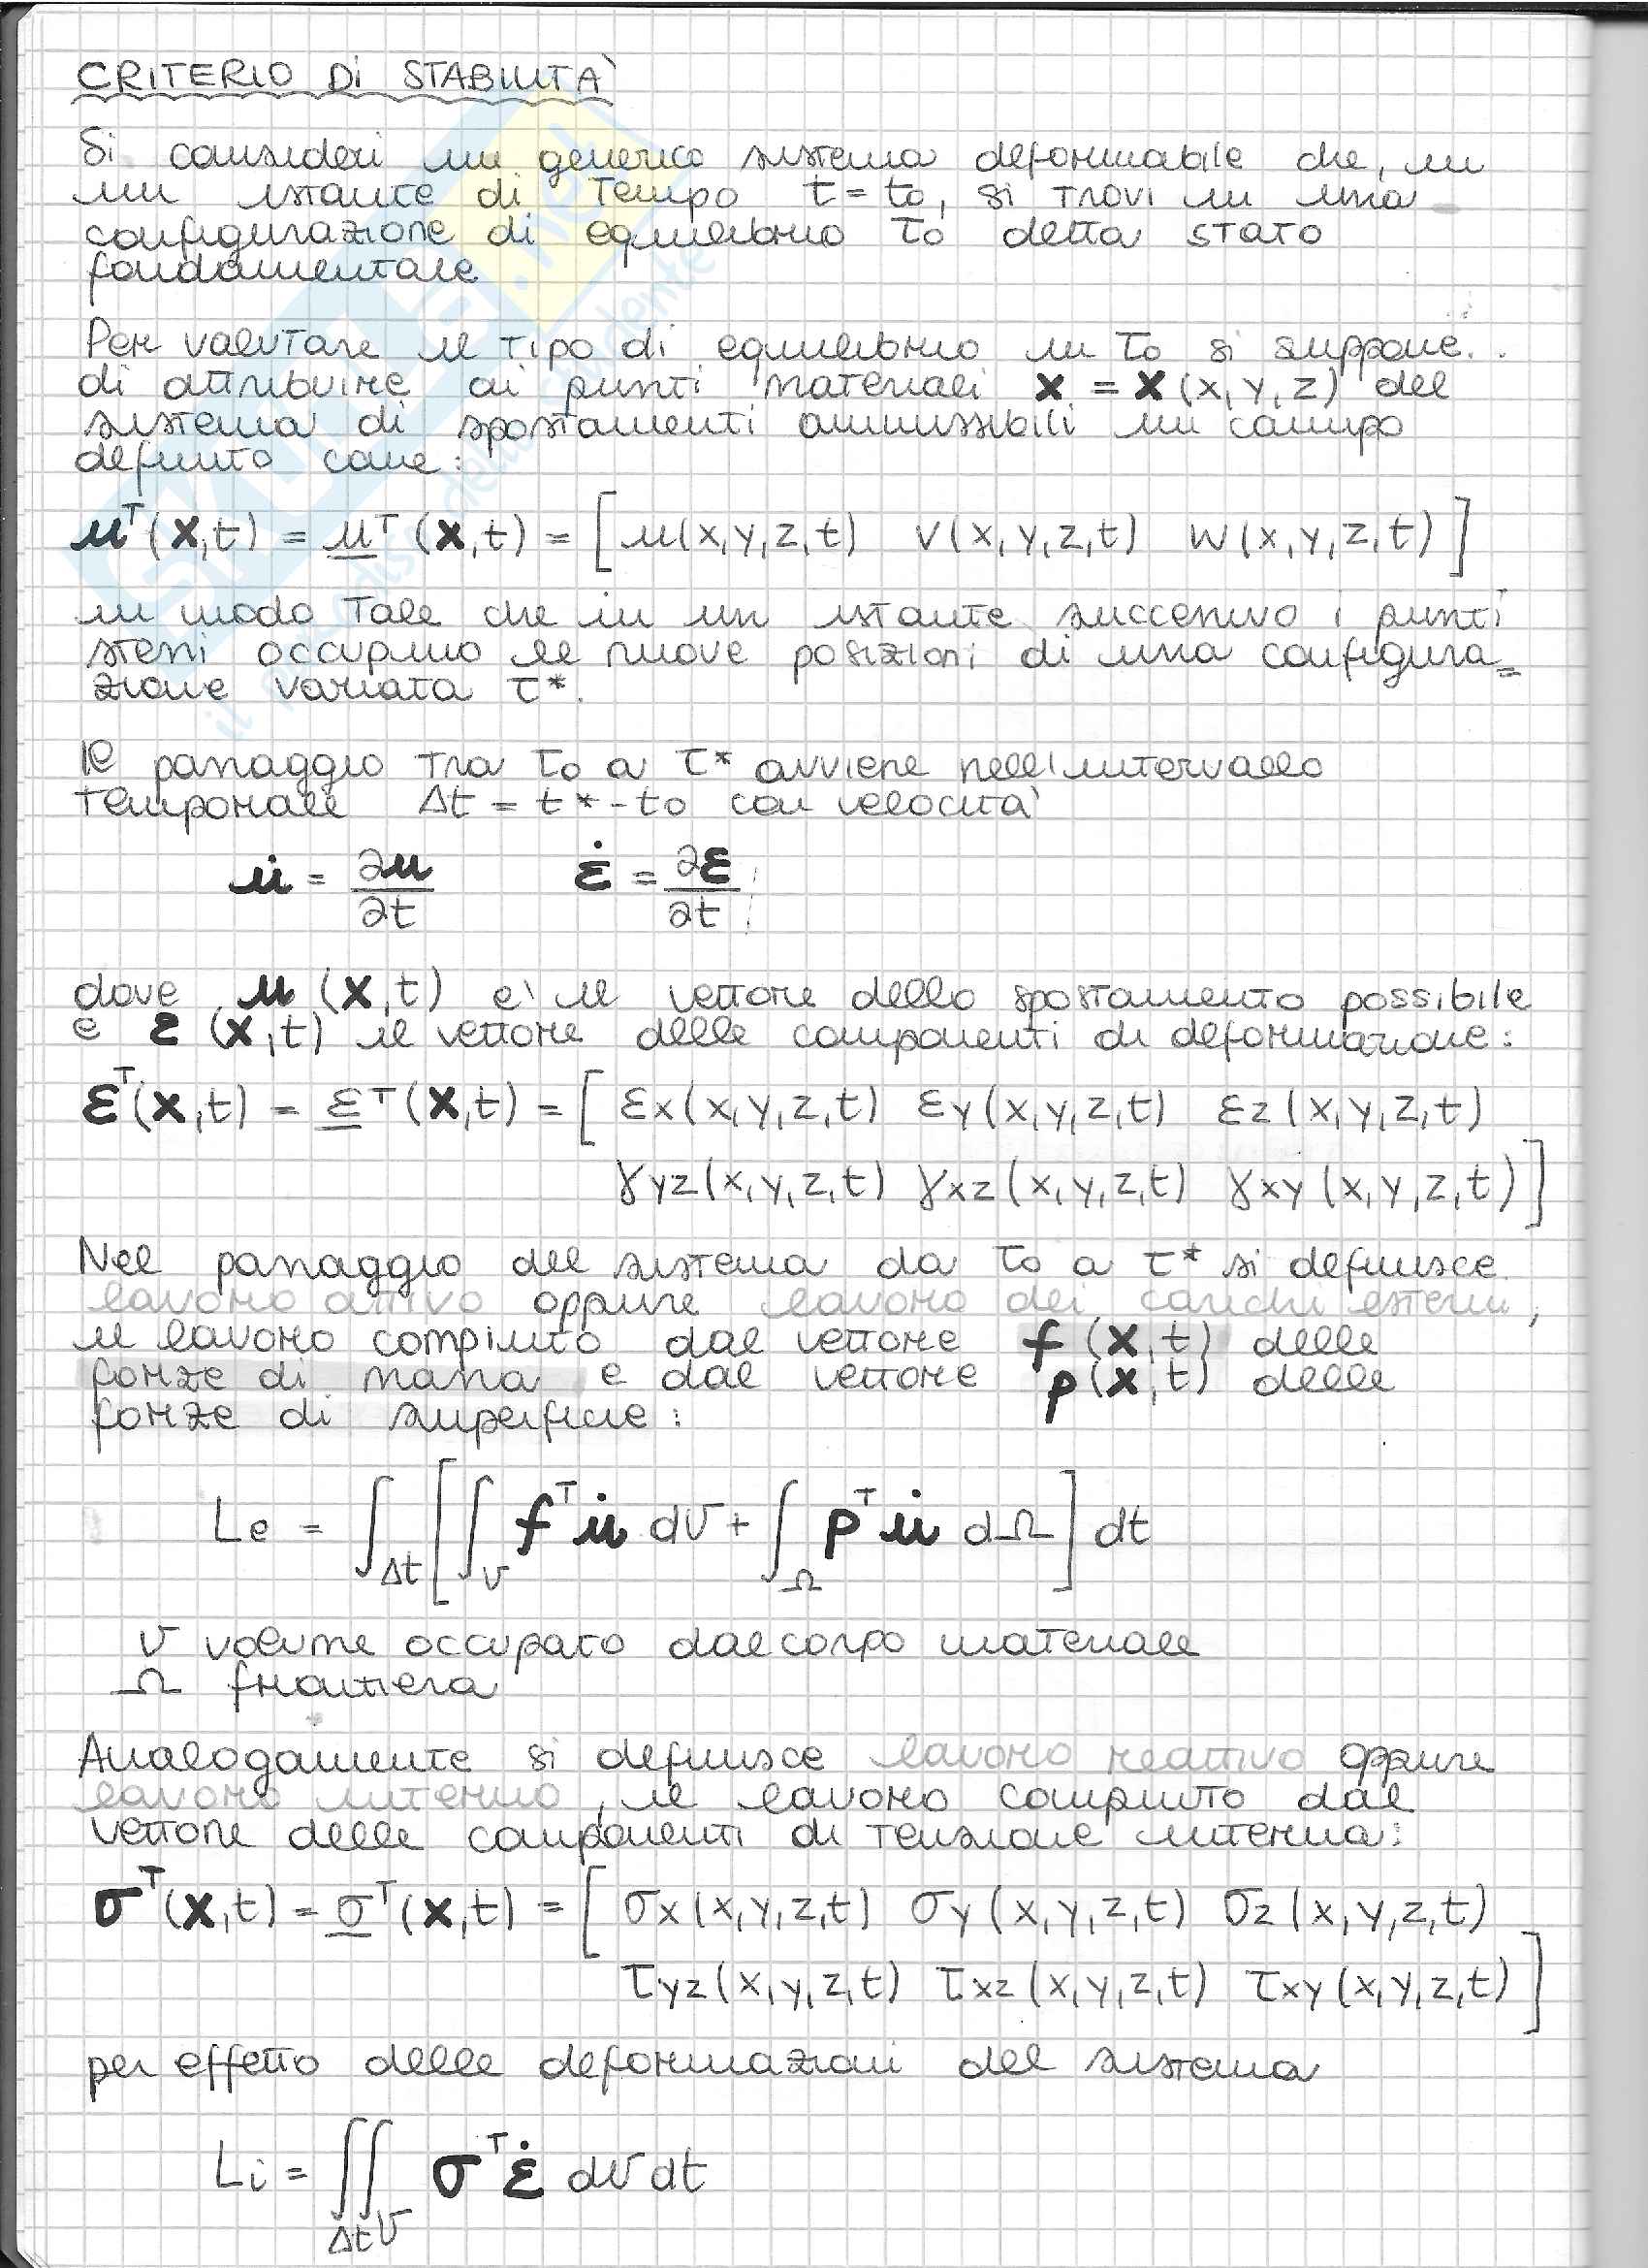 CRITERIO Di STABILITÀ
Si consideri un generico sistema deformabile che, in
un istante di tempo t = t0, si trovi in una
configurazione di equilibrio τ0 detta stato
fondamentale
Per valutare il tipo di equilibrio in τ0 si suppone..
di attribuire ai punti materiali x = x (x, y, z) del
sistema di spostamenti ammissibili un campo
definito come:
uᵀ(x,t) = uᵀ (x,t) = [ u(x,y,z,t) v(x,y,z,t) w(x,y,z,t) ]
in modo tale che in un istante successivo i punti
stessi occupino le nuove posizioni di una configura=
zione variata τ*.
Il passaggio tra τ0 a τ* avviene nell'intervallo
temporale Δt = t*-t0 con velocità
u̇ = ∂u/∂t ε̇ = ∂ε/∂t
dove u (x,t) e' il vettore dello spostamento possibile
e ε (x,t) il vettore delle componenti di deformazione:
εᵀ(x,t) = εᵀ(x,t) = [ εx(x,y,z,t) εy(x,y,z,t) εz(x,y,z,t)
γyz(x,y,z,t) γxz(x,y,z,t) γxy(x,y,z,t) ]
Nel passaggio del sistema da τ0 a τ* si definisce
lavoro attivo oppure lavoro dei carichi esterni,
il lavoro compiuto dal vettore f (x,t) delle
forze di massa e dal vettore p(x,t) delle
forze di superficie:
Le = ∫Δt [ ∫V fᵀ u̇ dV + ∫Ω pᵀ u̇ dΩ ] dt
V volume occupato dal corpo materiale
Ω frontiera
Analogamente si definisce lavoro reattivo oppure
lavoro interno, il lavoro compiuto dal
vettore delle componenti di tensione interna:
σᵀ(x,t) = σᵀ(x,t) = [ σx(x,y,z,t) σy(x,y,z,t) σz(x,y,z,t)
τyz(x,y,z,t) τxz(x,y,z,t) τxy(x,y,z,t) ]
per effetto delle deformazioni del sistema
Li = ∫Δt∫V σᵀ ε̇ dV dt